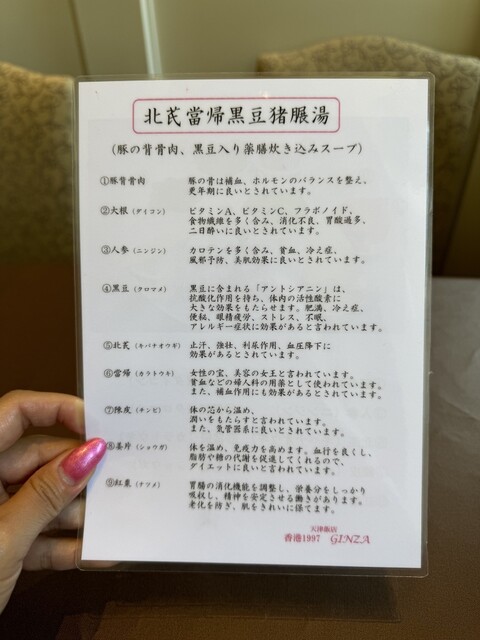 北芪當帰黒豆猪𦟌湯
(豚の背骨肉、黒豆入り薬膳炊き込みスープ)
①豚背骨肉 豚の骨は補血、ホルモンのバランスを整え、
更年期に良いとされています。
②大根(ダイコン) ビタミンA、ビタミンC、フラボノイド、
食物繊維を多く含み、消化不良、胃酸過多、
二日酔いに良いとされています。
③人参(ニンジン) カロテンを多く含み、貧血、冷え症、
風邪予防、美肌効果に良いとされています。
④黒豆(クロマメ) 黒豆に含まれる「アントシアニン」は、
抗酸化作用を持ち、体内の活性酸素に
大きな効果をもたらせます。肥満、冷え症、
便秘、眼精疲労、ストレス、不眠、
アレルギー症状に効果があると言われています。
⑤北芪(キバナオウギ) 止汗、強壮、利尿作用、血圧降下に
効果があるとされています。
⑥當帰(カラトウキ) 女性の宝、美容の女王と言われています。
貧血などの婦人科の用薬として使われています。
また、補血作用にも効果があるとされています。
⑦陳皮(チンピ) 体の芯から温め、
潤いをもたらすと言われています。
また、気管器系に良いとされています。
⑧姜片(ショウガ) 体を温め、免疫力を高めます。血行を良くし、
脂肪や糖の代謝を促進してくれるので、
ダイエットに良いと言われています。
⑨紅棗(ナツメ) 胃腸の消化機能を調整し、栄養分をしっかり
吸収し、精神を安定させる働きがあります。
老化を防ぎ、肌をきれいに保てます。
天津飯店
香港1997 GINZA